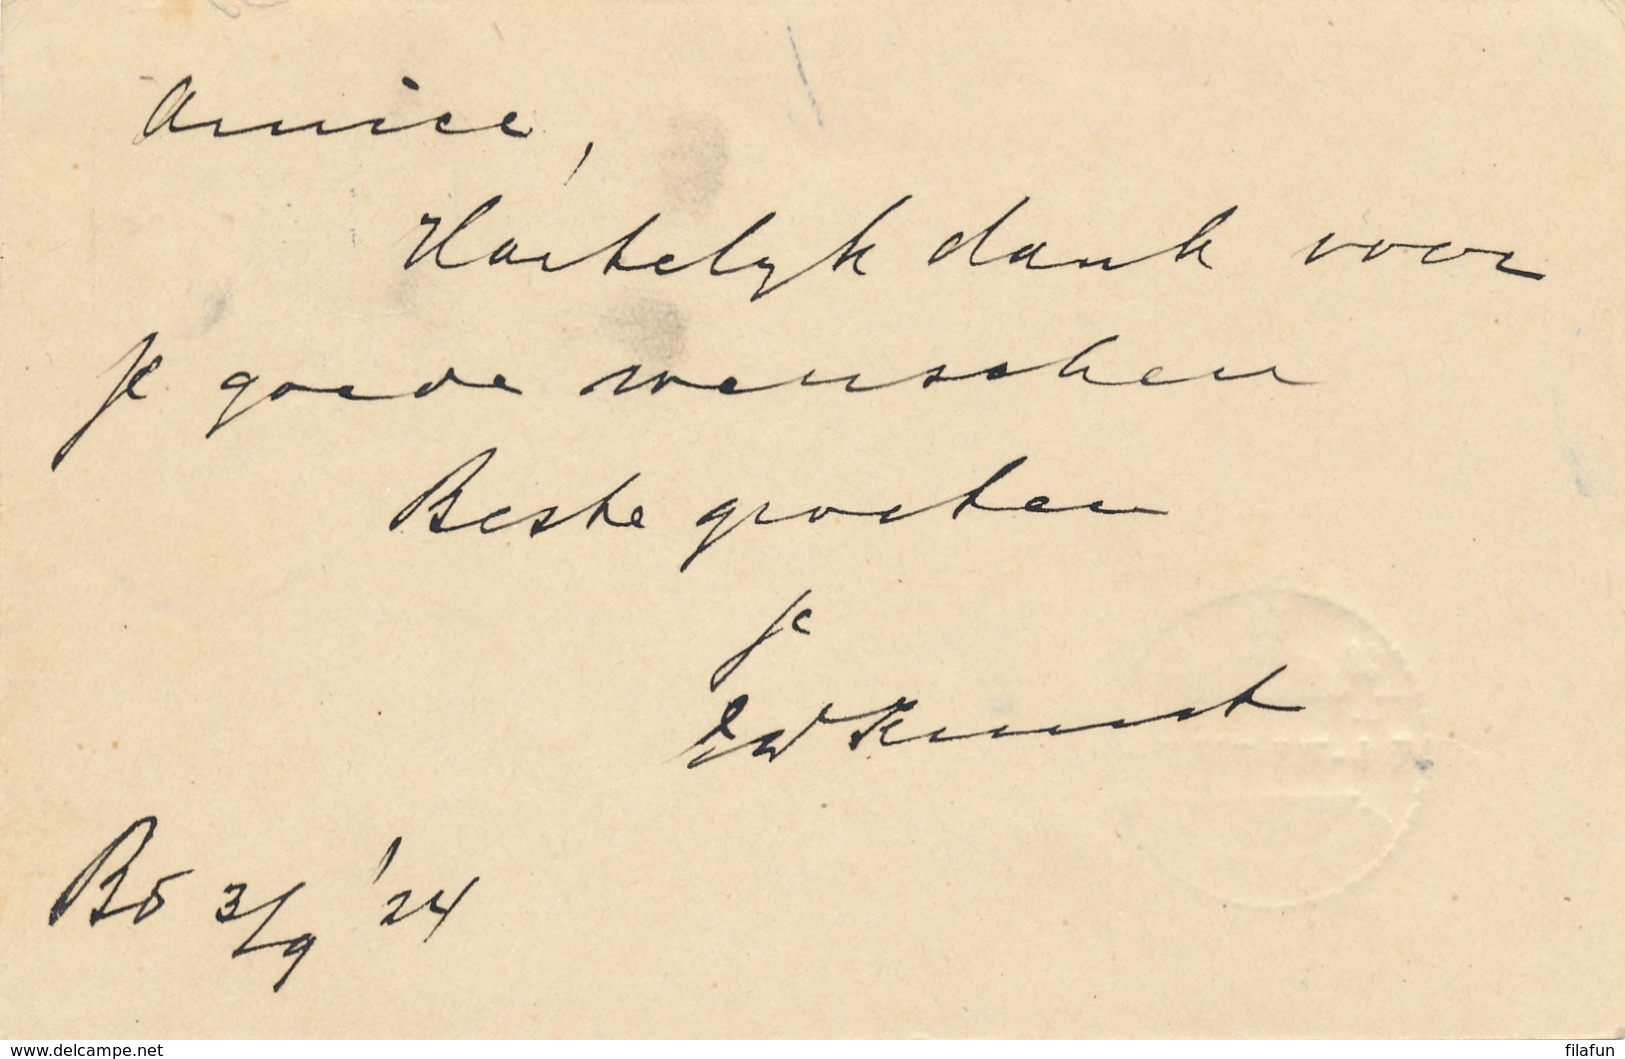 Amice,
Hartelyk dank voor
je goede wenschen
Beste groeten
je
EW Kunst
Bd 3/9 '24
www.delcampe.net
filafun